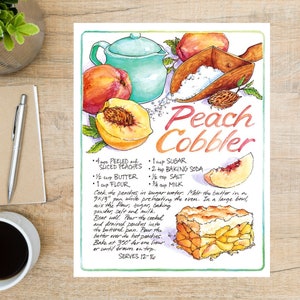 Peach
Cobbler
• 4 PEELED and SLICED PEACHES
• ½ cup BUTTER
• 1 cup FLOUR
• 1 cup SUGAR
• 2 tsp BAKING SODA
• ½ tsp SALT
• ¾ cup MILK
Cook the peaches in sugar water. Melt the butter in a
9"x13" pan while preheating the oven. In a large bowl,
mix the flour, sugar, baking
powder, salt and milk.
Blend well. Pour the cooked
and drained peaches into
the buttered pan. Pour the
batter over the hot peaches.
Bake at 350° for one hour
or until brown on top.
SERVES 12-16